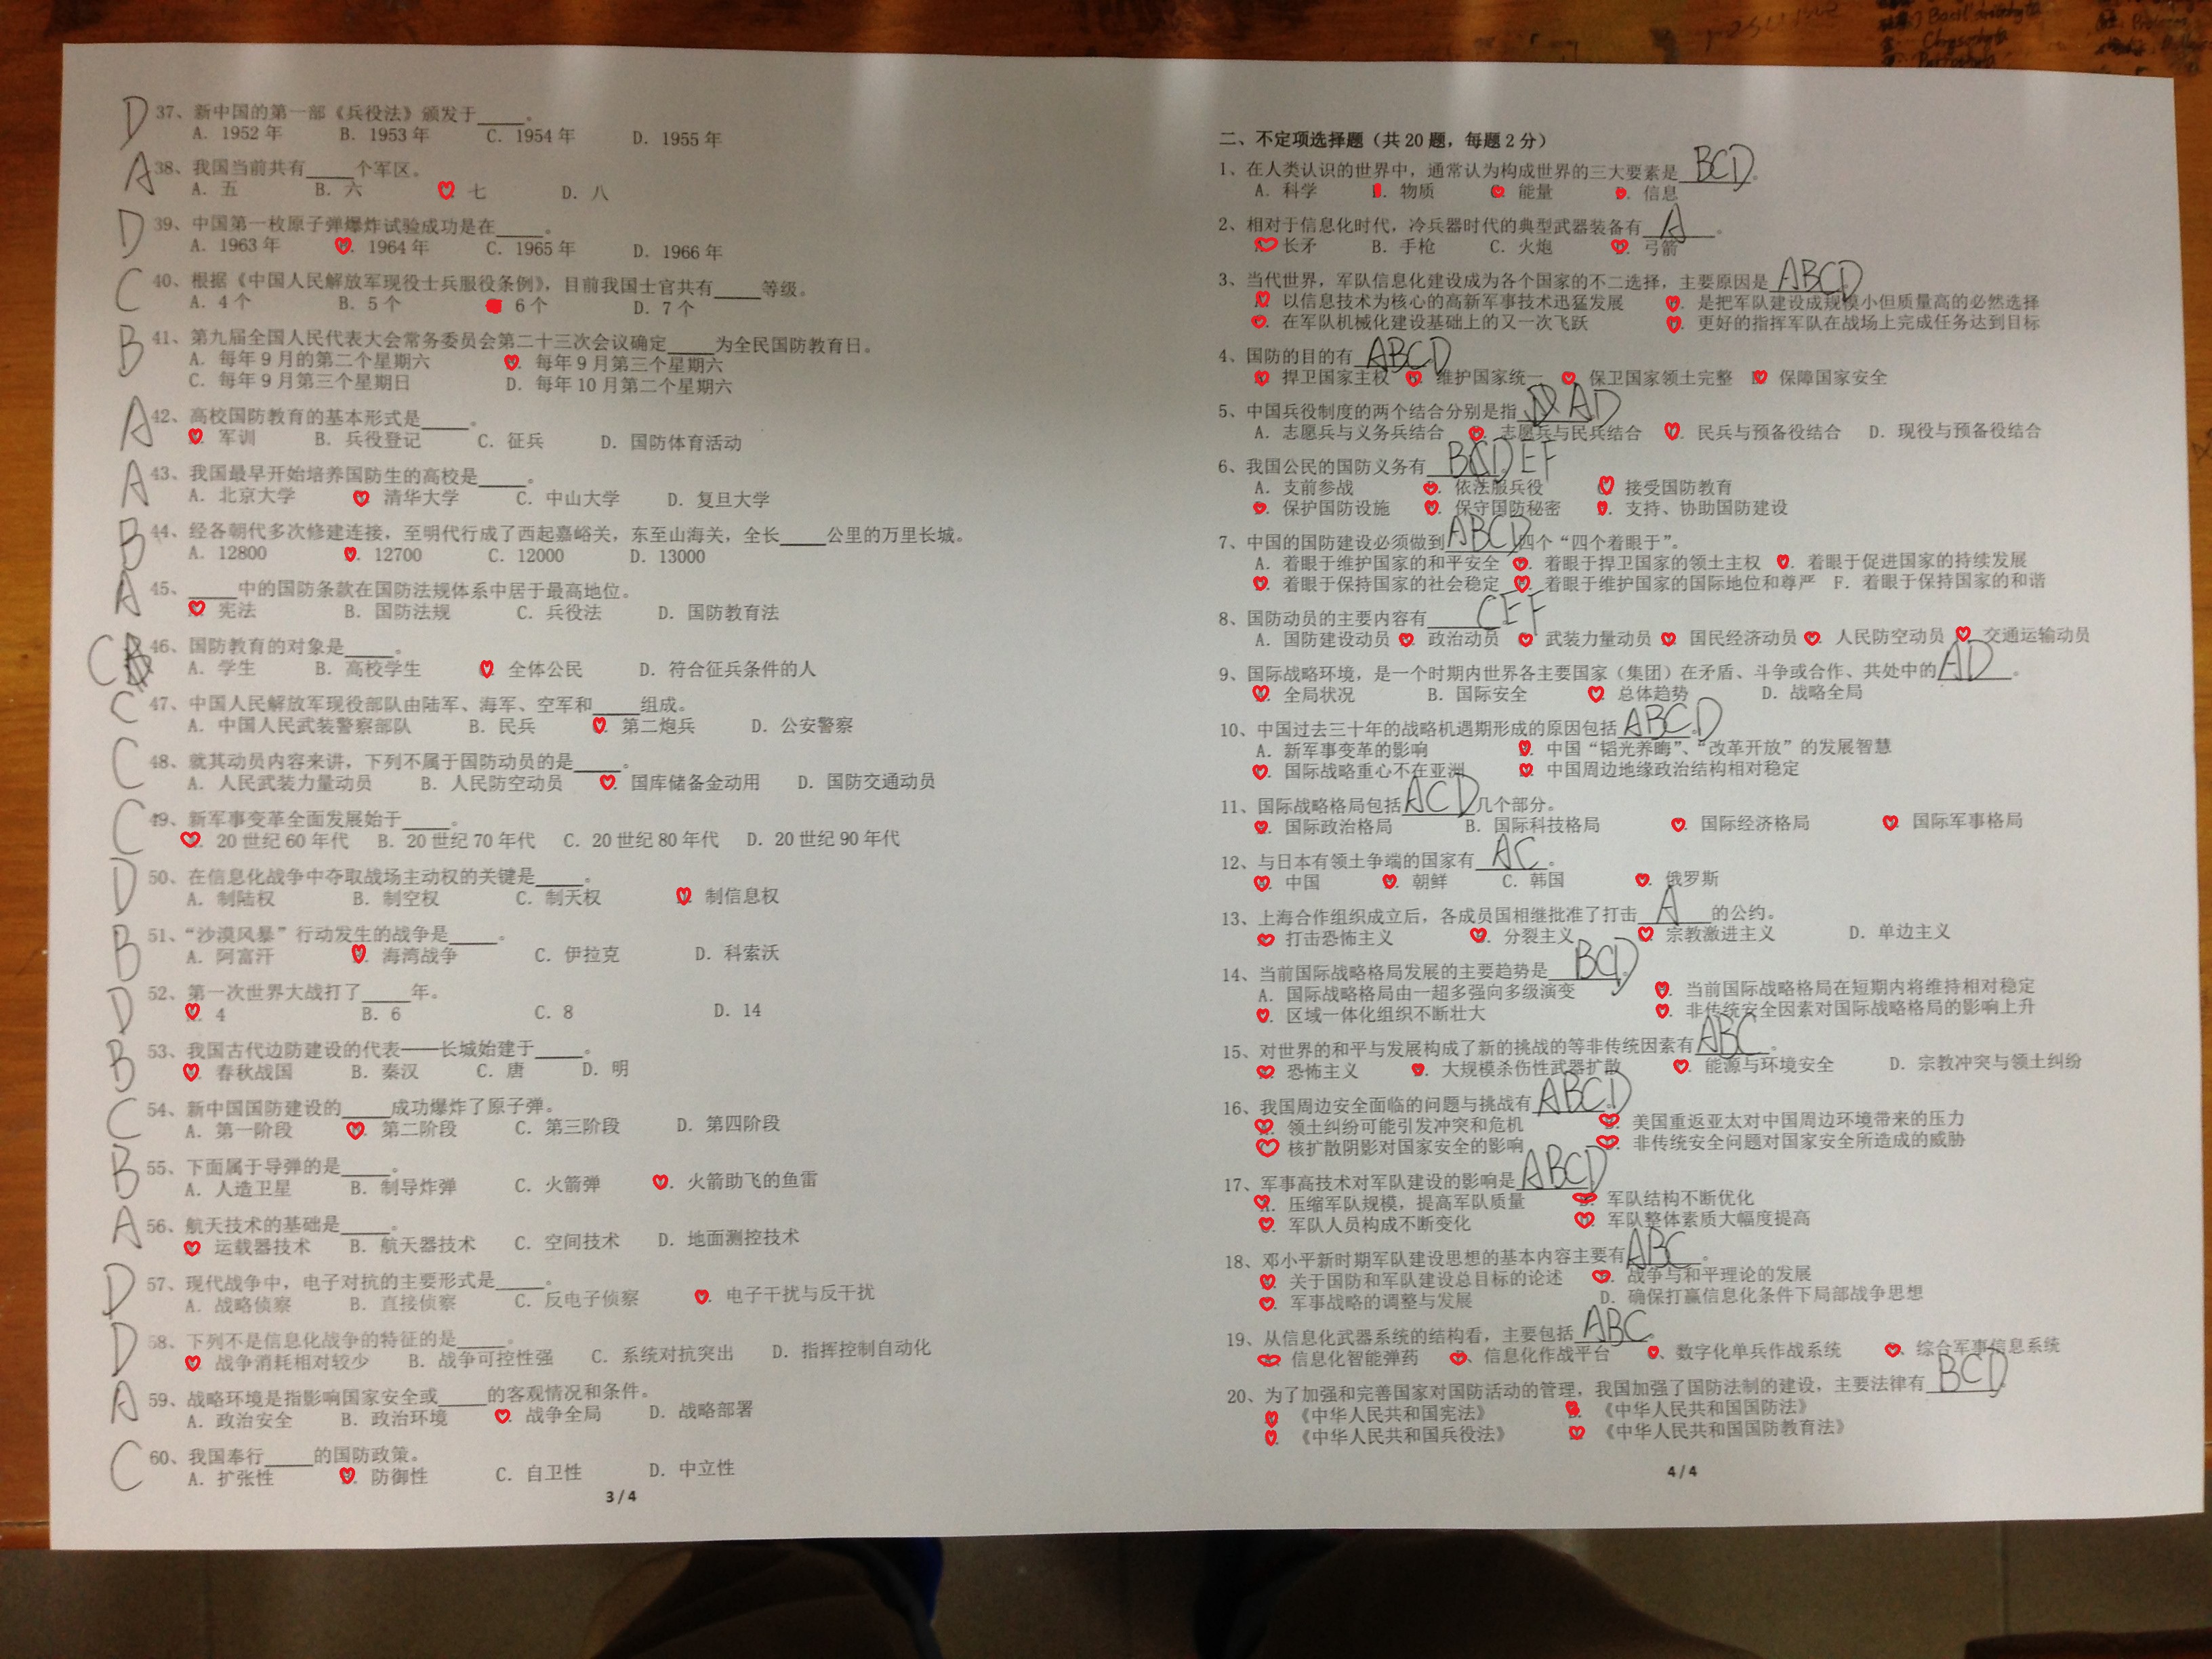 D 37、新中国的第一部《兵役法》颁发于_____。
A. 1952年 B. 1953年 C. 1954年 D. 1955年
A 38、我国当前共有_____个军区。
A. 五 B. 六 . 七 D. 八
D 39、中国第一枚原子弹爆炸试验成功是在_____。
A. 1963年 . 1964年 C. 1965年 D. 1966年
C 40、根据《中国人民解放军现役士兵服役条例》，目前我国士官共有_____等级。
A. 4个 B. 5个 6个 D. 7个
B 41、第九届全国人民代表大会常务委员会第二十三次会议确定_____为全民国防教育日。
A. 每年9月的第二个星期六 . 每年9月第三个星期六
C. 每年9月第三个星期日 D. 每年10月第二个星期六
A 42、高校国防教育的基本形式是_____。
. 军训 B. 兵役登记 C. 征兵 D. 国防体育活动
A 43、我国最早开始培养国防生的高校是_____。
A. 北京大学 . 清华大学 C. 中山大学 D. 复旦大学
B 44、经各朝代多次修建连接，至明代行成了西起嘉峪关，东至山海关，全长_____公里的万里长城。
A. 12800 . 12700 C. 12000 D. 13000
A 45、_____中的国防条款在国防法规体系中居于最高地位。
宪法 B. 国防法规 C. 兵役法 D. 国防教育法
C 46、国防教育的对象是_____。
A. 学生 B. 高校学生 . 全体公民 D. 符合征兵条件的人
C 47、中国人民解放军现役部队由陆军、海军、空军和_____组成。
A. 中国人民武装警察部队 B. 民兵 . 第二炮兵 D. 公安警察
C 48、就其动员内容来讲，下列不属于国防动员的是_____。
A. 人民武装力量动员 B. 人民防空动员 . 国库储备金动用 D. 国防交通动员
C 49、新军事变革全面发展始于_____。
. 20世纪60年代 B. 20世纪70年代 C. 20世纪80年代 D. 20世纪90年代
D 50、在信息化战争中夺取战场主动权的关键是_____。
A. 制陆权 B. 制空权 C. 制天权 . 制信息权
B 51、“沙漠风暴”行动发生的战争是_____。
A. 阿富汗 . 海湾战争 C. 伊拉克 D. 科索沃
D 52、第一次世界大战打了_____年。
. 4 B. 6 C. 8 D. 14
B 53、我国古代边防建设的代表——长城始建于_____。
. 春秋战国 B. 秦汉 C. 唐 D. 明
C 54、新中国国防建设的_____成功爆炸了原子弹。
A. 第一阶段 . 第二阶段 C. 第三阶段 D. 第四阶段
B 55、下面属于导弹的是_____。
A. 人造卫星 B. 制导炸弹 C. 火箭弹 . 火箭助飞的鱼雷
A 56、航天技术的基础是_____。
. 运载器技术 B. 航天器技术 C. 空间技术 D. 地面测控技术
D 57、现代战争中，电子对抗的主要形式是_____。
A. 战略侦察 B. 直接侦察 C. 反电子侦察 . 电子干扰与反干扰
D 58、下列不是信息化战争的特征的是_____。
. 战争消耗相对较少 B. 战争可控性强 C. 系统对抗突出 D. 指挥控制自动化
A 59、战略环境是指影响国家安全或_____的客观情况和条件。
A. 政治安全 B. 政治环境 . 战争全局 D. 战略部署
C 60、我国奉行_____的国防政策。
A. 扩张性 . 防御性 C. 自卫性 D. 中立性
3 / 4
二、不定项选择题（共20题，每题2分）
1、在人类认识的世界中，通常认为构成世界的三大要素是 BCD 。
A. 科学 . 物质 . 能量 . 信息
2、相对于信息化时代，冷兵器时代的典型武器装备有 A 。
长矛 B. 手枪 C. 火炮 . 弓箭
3、当代世界，军队信息化建设成为各个国家的不二选择，主要原因是 ABCD 。
. 以信息技术为核心的高新军事技术迅猛发展 . 是把军队建设成规模小但质量高的必然选择
. 在军队机械化建设基础上的又一次飞跃 . 更好的指挥军队在战场上完成任务达到目标
4、国防的目的有 ABCD
. 捍卫国家主权 . 维护国家统一 . 保卫国家领土完整 . 保障国家安全
5、中国兵役制度的两个结合分别是指 AD
A. 志愿兵与义务兵结合 . 志愿兵与民兵结合 . 民兵与预备役结合 D. 现役与预备役结合
6、我国公民的国防义务有 BCDEF
A. 支前参战 . 依法服兵役 接受国防教育
. 保护国防设施 . 保守国防秘密 . 支持、协助国防建设
7、中国的国防建设必须做到 ABCD 四个“四个着眼于”。
A. 着眼于维护国家的和平安全 . 着眼于捍卫国家的领土主权 . 着眼于促进国家的持续发展
. 着眼于保持国家的社会稳定 . 着眼于维护国家的国际地位和尊严 F. 着眼于保持国家的和谐
8、国防动员的主要内容有 CEF
A. 国防建设动员 . 政治动员 . 武装力量动员 . 国民经济动员 . 人民防空动员 . 交通运输动员
9、国际战略环境，是一个时期内世界各主要国家（集团）在矛盾、斗争或合作、共处中的 AD 。
. 全局状况 B. 国际安全 . 总体趋势 D. 战略全局
10、中国过去三十年的战略机遇期形成的原因包括 ABCD 。
A. 新军事变革的影响 . 中国“韬光养晦”、“改革开放”的发展智慧
. 国际战略重心不在亚洲 . 中国周边地缘政治结构相对稳定
11、国际战略格局包括 ACD 几个部分。
. 国际政治格局 B. 国际科技格局 . 国际经济格局 . 国际军事格局
12、与日本有领土争端的国家有 AC 。
. 中国 . 朝鲜 C. 韩国 . 俄罗斯
13、上海合作组织成立后，各成员国相继批准了打击 A 的公约。
打击恐怖主义 . 分裂主义 . 宗教激进主义 D. 单边主义
14、当前国际战略格局发展的主要趋势是 BCD 。
A. 国际战略格局由一超多强向多级演变 . 当前国际战略格局在短期内将维持相对稳定
. 区域一体化组织不断壮大 . 非传统安全因素对国际战略格局的影响上升
15、对世界的和平与发展构成了新的挑战的等非传统因素有 ABC 。
. 恐怖主义 . 大规模杀伤性武器扩散 . 能源与环境安全 D. 宗教冲突与领土纠纷
16、我国周边安全面临的问题与挑战有 ABCD 。
. 领土纠纷可能引发冲突和危机 . 美国重返亚太对中国周边环境带来的压力
核扩散阴影对国家安全的影响 . 非传统安全问题对国家安全所造成的威胁
17、军事高技术对军队建设的影响是 ABCD
. 压缩军队规模，提高军队质量 . 军队结构不断优化
. 军队人员构成不断变化 . 军队整体素质大幅度提高
18、邓小平新时期军队建设思想的基本内容主要有 ABC 。
. 关于国防和军队建设总目标的论述 . 战争与和平理论的发展
. 军事战略的调整与发展 D. 确保打赢信息化条件下局部战争思想
19、从信息化武器系统的结构看，主要包括 ABC 。
信息化智能弹药 、信息化作战平台 、数字化单兵作战系统 、综合军事信息系统
20、为了加强和完善国家对国防活动的管理，我国加强了国防法制的建设，主要法律有 BCD 。
《中华人民共和国宪法》 . 《中华人民共和国国防法》
. 《中华人民共和国兵役法》 . 《中华人民共和国国防教育法》
4 / 4